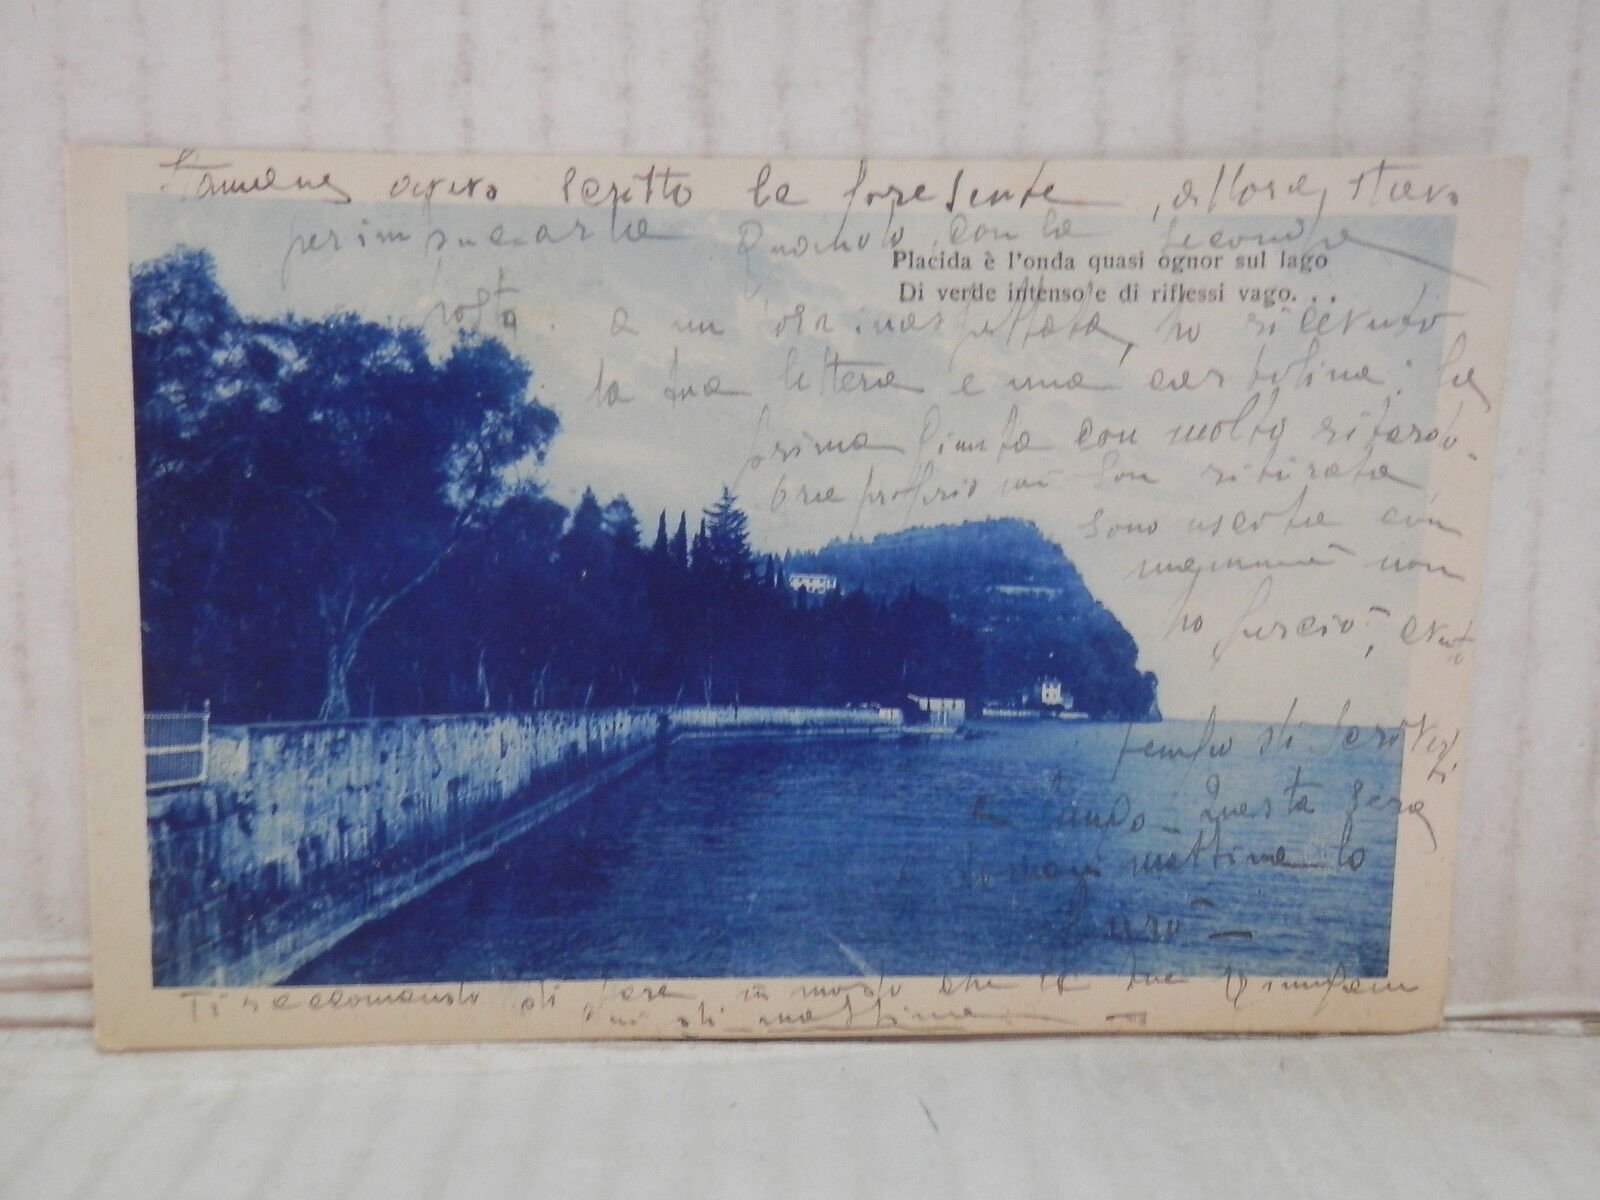 Stamane avevo scritto la presente, allora, stavo
per impucarla quando, con la seconda
Placida è l'onda quasi ognor sul lago
Di verde intenso e di riflessi vago. . .
posta. a un'ora inaspettata, ho ricevuto
la tua lettera e una cartolina: la
prima giunta con molto ritardo.
Ora proprio mi son ritirata,
sono uscita con
mammà non
ho, perciò, avuto
tempo di scriverti
a lungo. Questa sera
domani mattina lo
farò —
Ti raccomando di fare in modo che le tue giungano
mi di mattina —